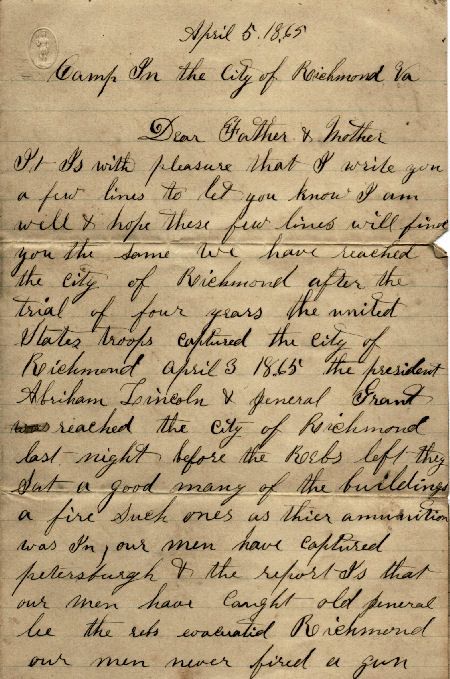 April 5. 1865
Camp In the City of Richmond Va
Dear Father & Mother
It Is with pleasure that I write you
a few lines to let you know I am
will & hope these few lines will find
you the same we have reached
the city of Richmond after the
trial of four years the united
States troops captured the city of
Richmond april 3 1865 the president
Abriham Lincoln & general Grant
was reached the city of Richmond
last night before the Rebs left they
Sat a good many of the buildings
a fire Such ones as thier amunition
was In, our men have captured
petersburgh & the report Is that
our men have Caught old general
lee the rebs evacuatid Richmond
our men never fired a gun